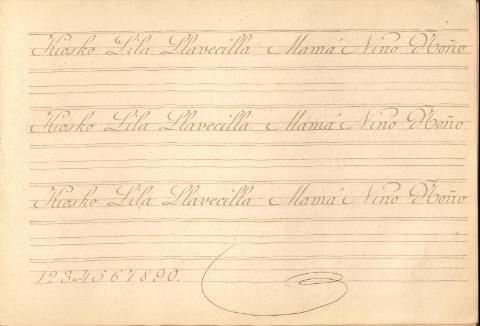 Kiosko Lila Llavecilla Mamá Nino Ñoño
Kiosko Lila Llavecilla Mamá Nino Ñoño
Kiosko Lila Llavecilla Mamá Nino Ñoño
1234567890.